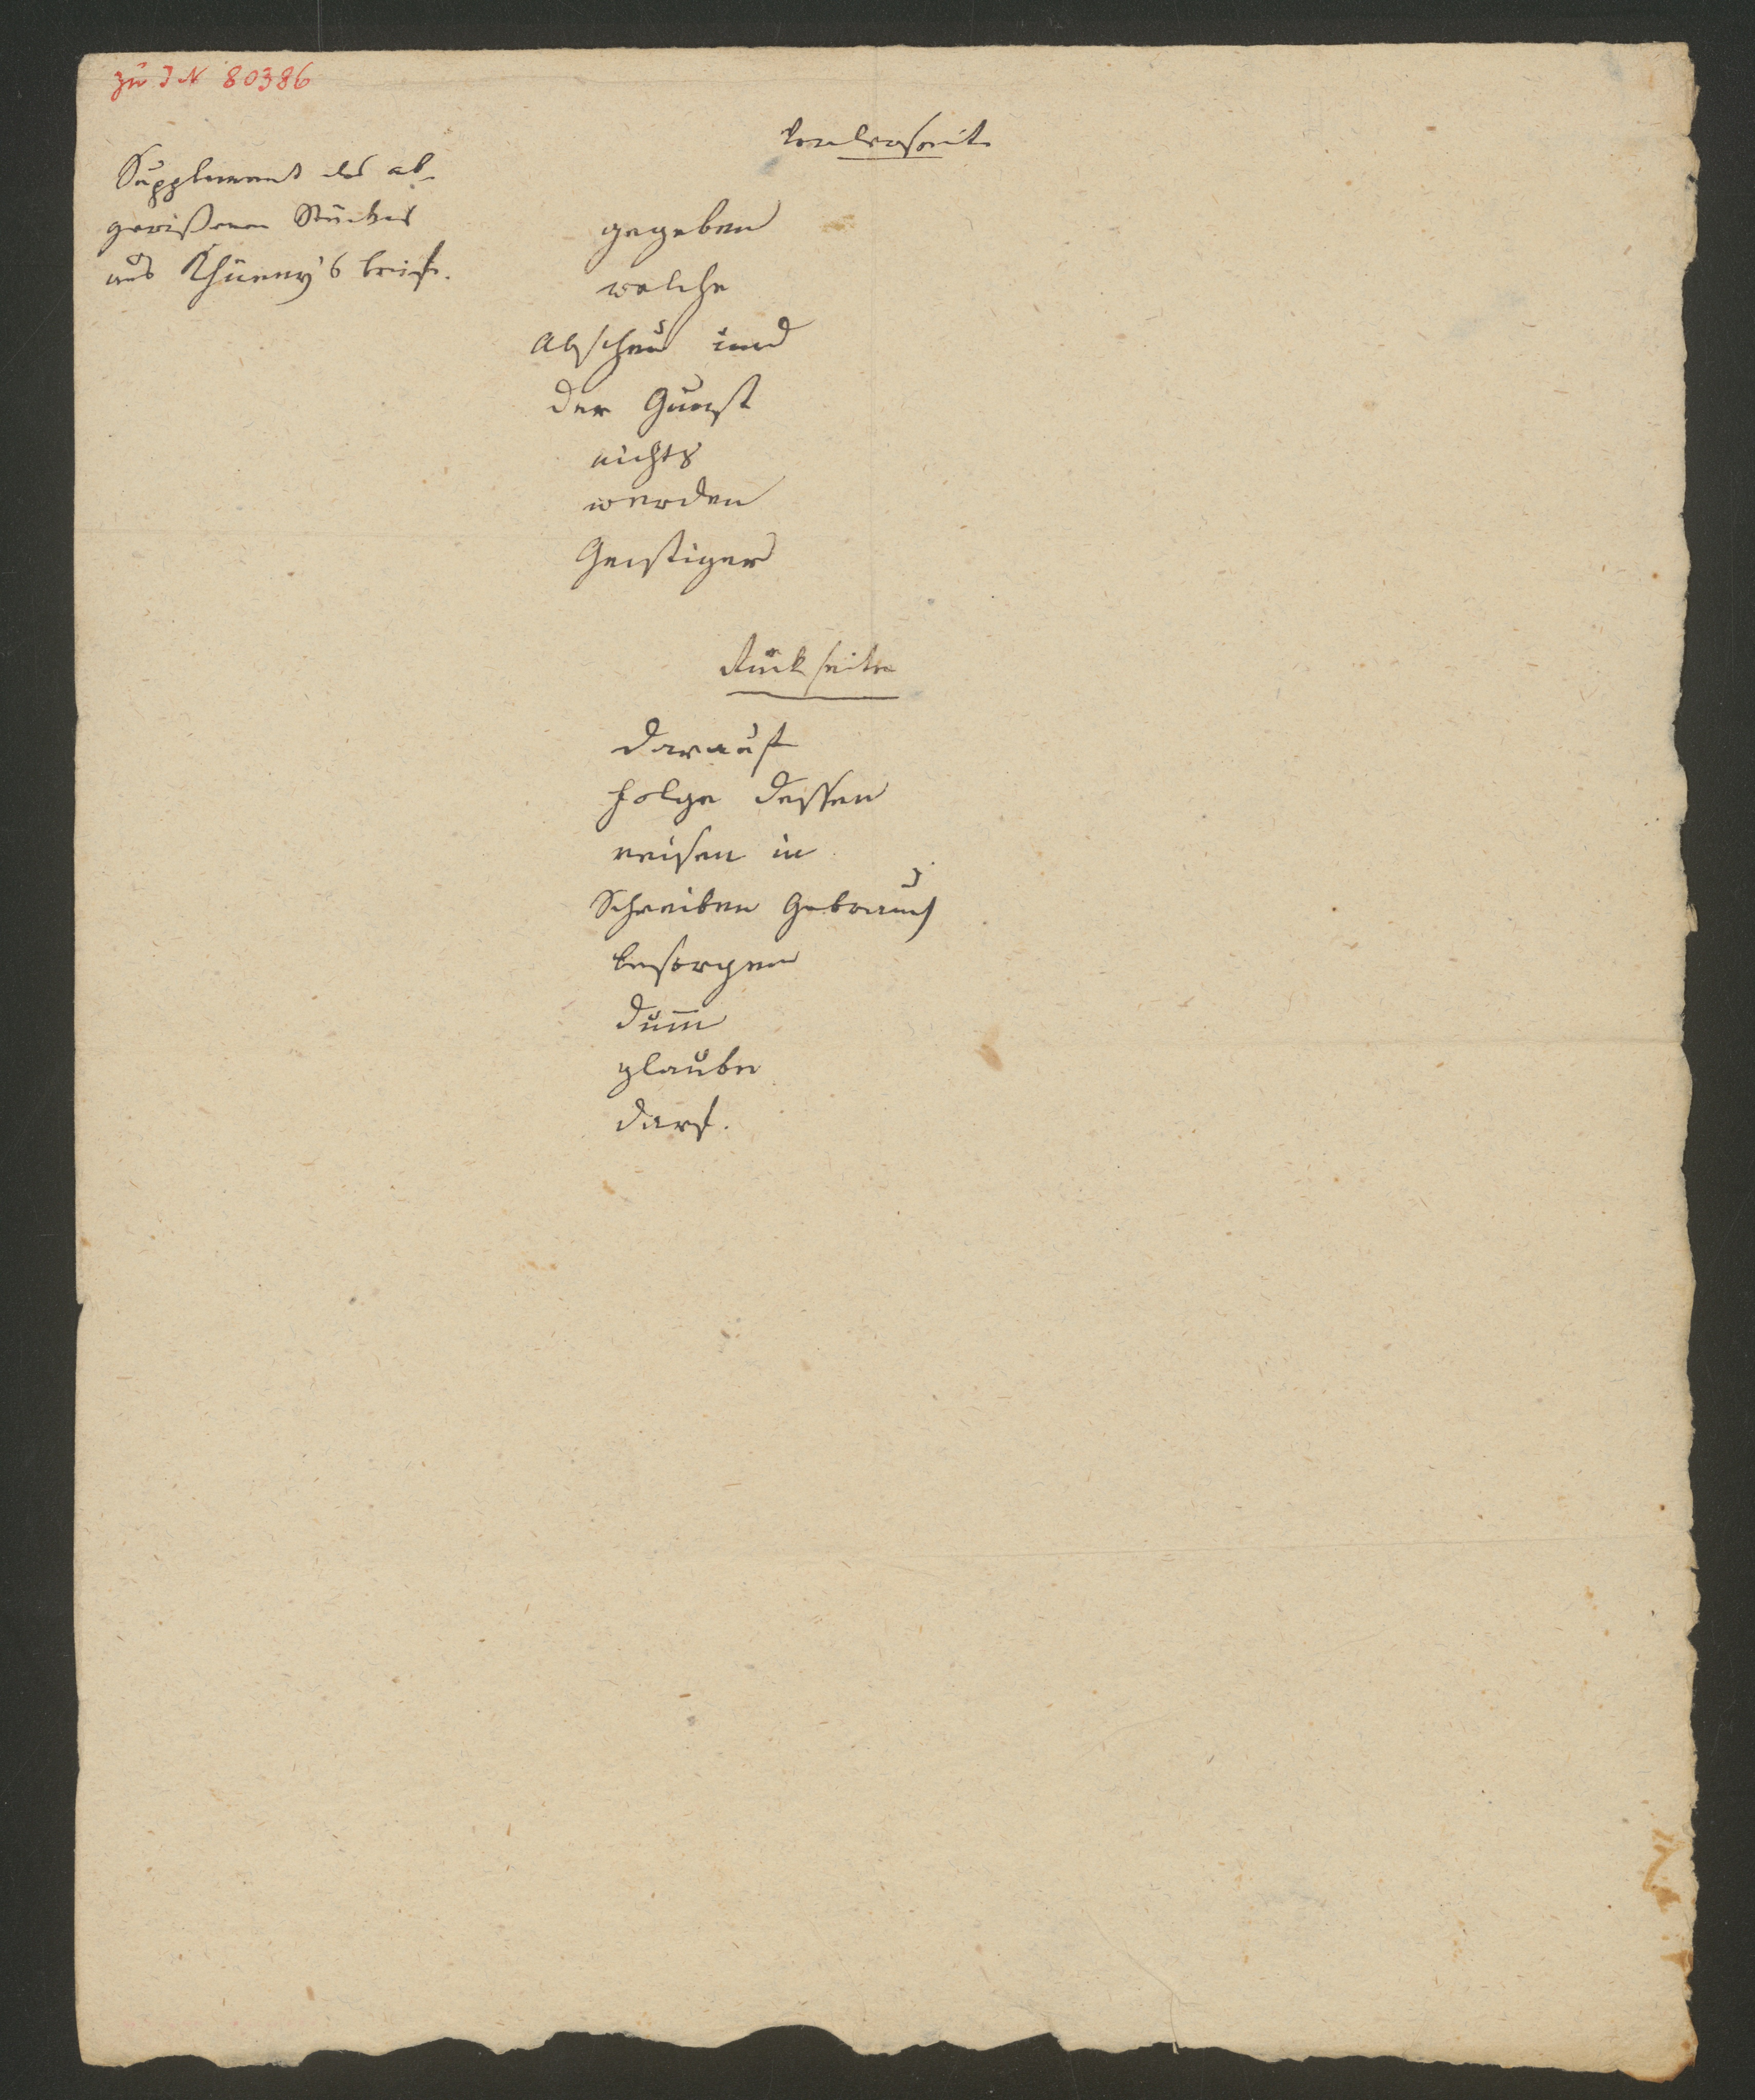 zu IN 80386
Vorderseite
Supplement des ab-
gerißenen Stückes
aus Briefe.
gegeben
welche
Abscheu und
der Gunst
nichts
werden
Geistiger
Rückseite
darauf
folge dessen
reisen in
Schreiben Gebrauch
besorgen
dum̅
glaube
darf.